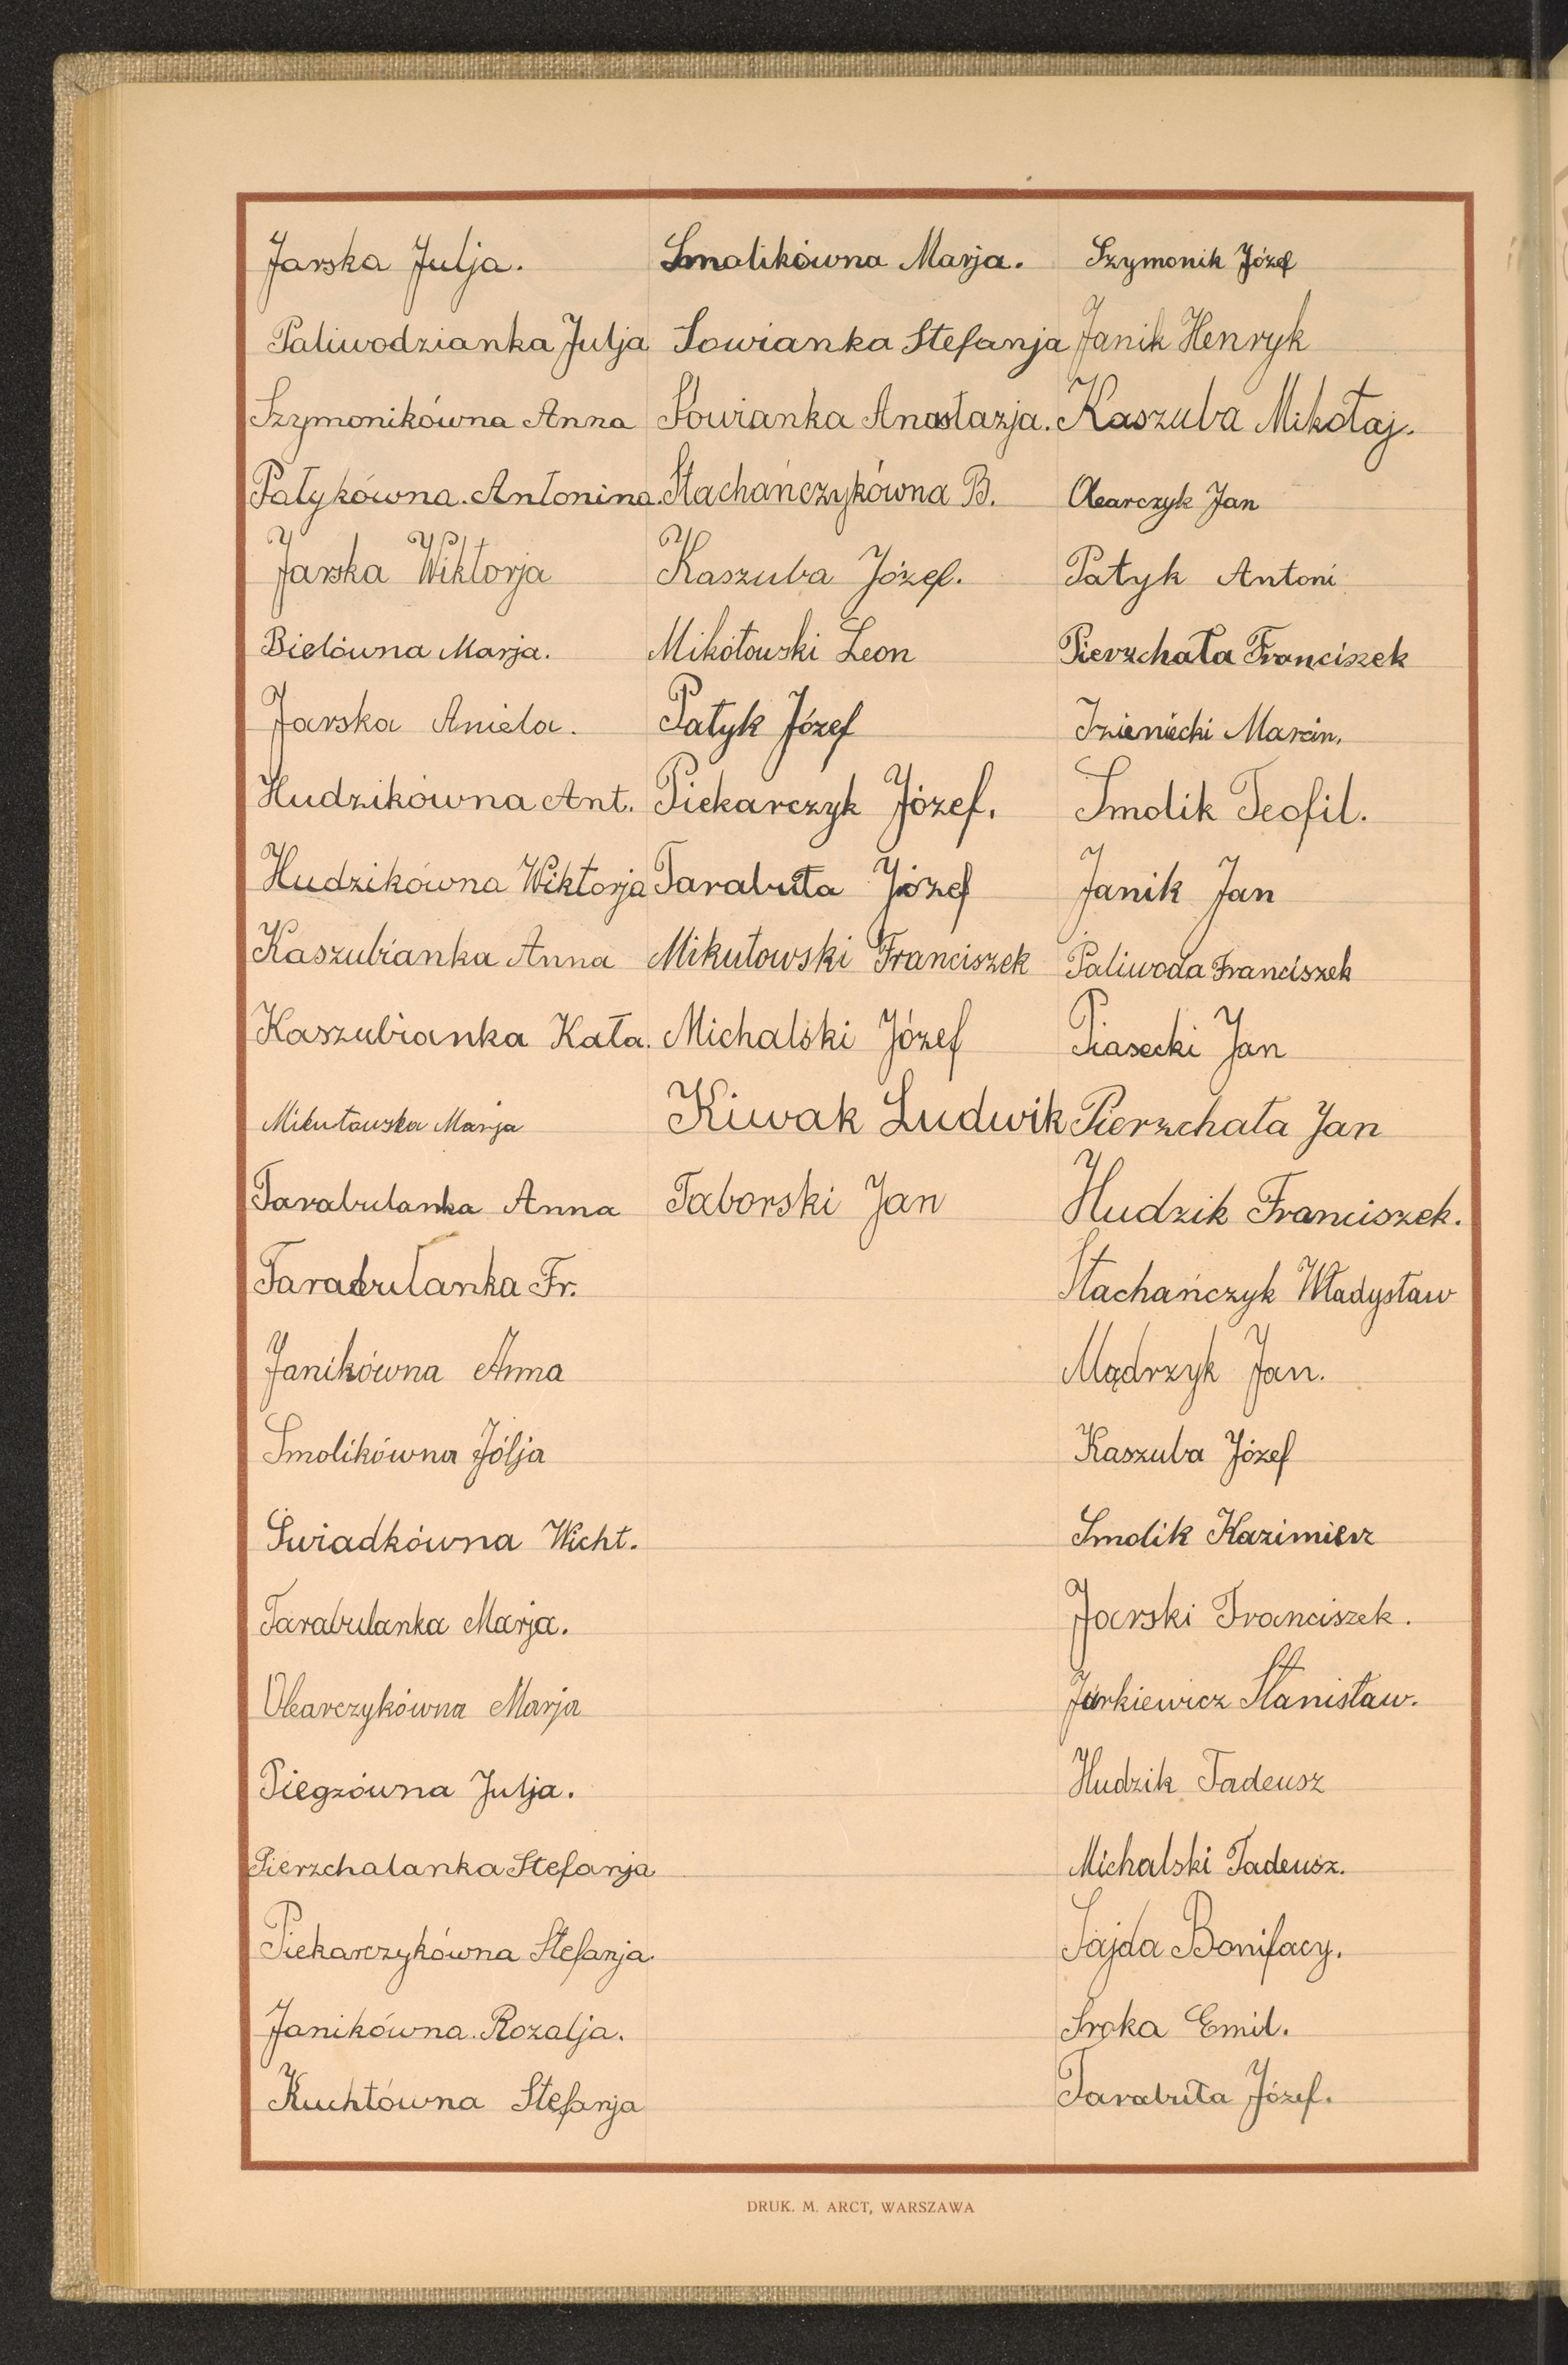 Jarska Julja.
Paliwodzianka Julja
Szymonikówna Anna
Patykówna. Antonina.
Jarska Wiktorja
Bielówna Marja.
Jarska Aniela.
Hudzikówna Ant.
Hudzikówna Wiktorja
Kaszubianka Anna
Kaszubianka Kata.
Mikułowska Marja
Tarabulanka Anna
Tarabulanka Fr.
Janikówna Anna
Smolikówna Jólja
Świadkówna Wicht.
Tarabulanka Marja.
Olearczykówna Marja
Piegzówna Julja.
Pierzchalanka Stefanja
Piekarczykówna Stefanja
Janikówna. Rozalja.
Kuchtówna Stefanja
Smolikówna Marja.
Sowianka Stefanja
Sowianka Anastazja.
Stachańczykówna B.
Kaszuba Józef.
Mikołowski Leon
Patyk Józef
Piekarczyk Józef.
Tarabuła Józef
Mikułowski Franciszek
Michalski Józef
Kiwak Ludwik
Taborski Jan
Szymonik Józef
Janik Henryk
Kaszuba Mikołaj.
Olearczyk Jan
Patyk Antoni
Pierzchała Franciszek
Marcin.
Smolik Teofil.
Janik Jan
Paliwoda Franciszek
Piasecki Jan
Pierzchała Jan
Hudzik Franciszek.
Stachańczyk Władysław
Mądrzyk Jan.
Kaszuba Józef
Smolik Kazimierz
Jarski Franciszek.
Jurkiewicz Stanisław.
Hudzik Tadeusz
Michalski Tadeusz.
Sajda Bonifacy.
Sroka Emil.
Tarabuła Józef.
DRUK. M. ARCT, WARSZAWA